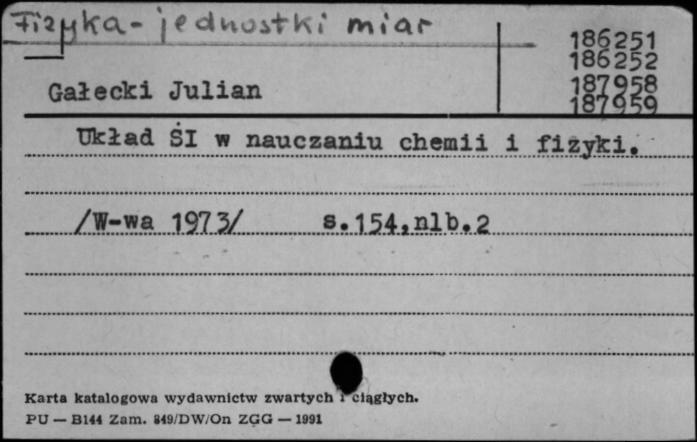 Fizyka - jednostki miar
186251
186252
187958
187959
Gałecki Julian
Układ SI w nauczaniu chemii i fizyki.
/W-wa 1973/ s.154,nlb.2
Karta katalogowa wydawnictw zwartych i ciągłych.
PU — B144 Zam. 849/DW/On ZGG — 1991